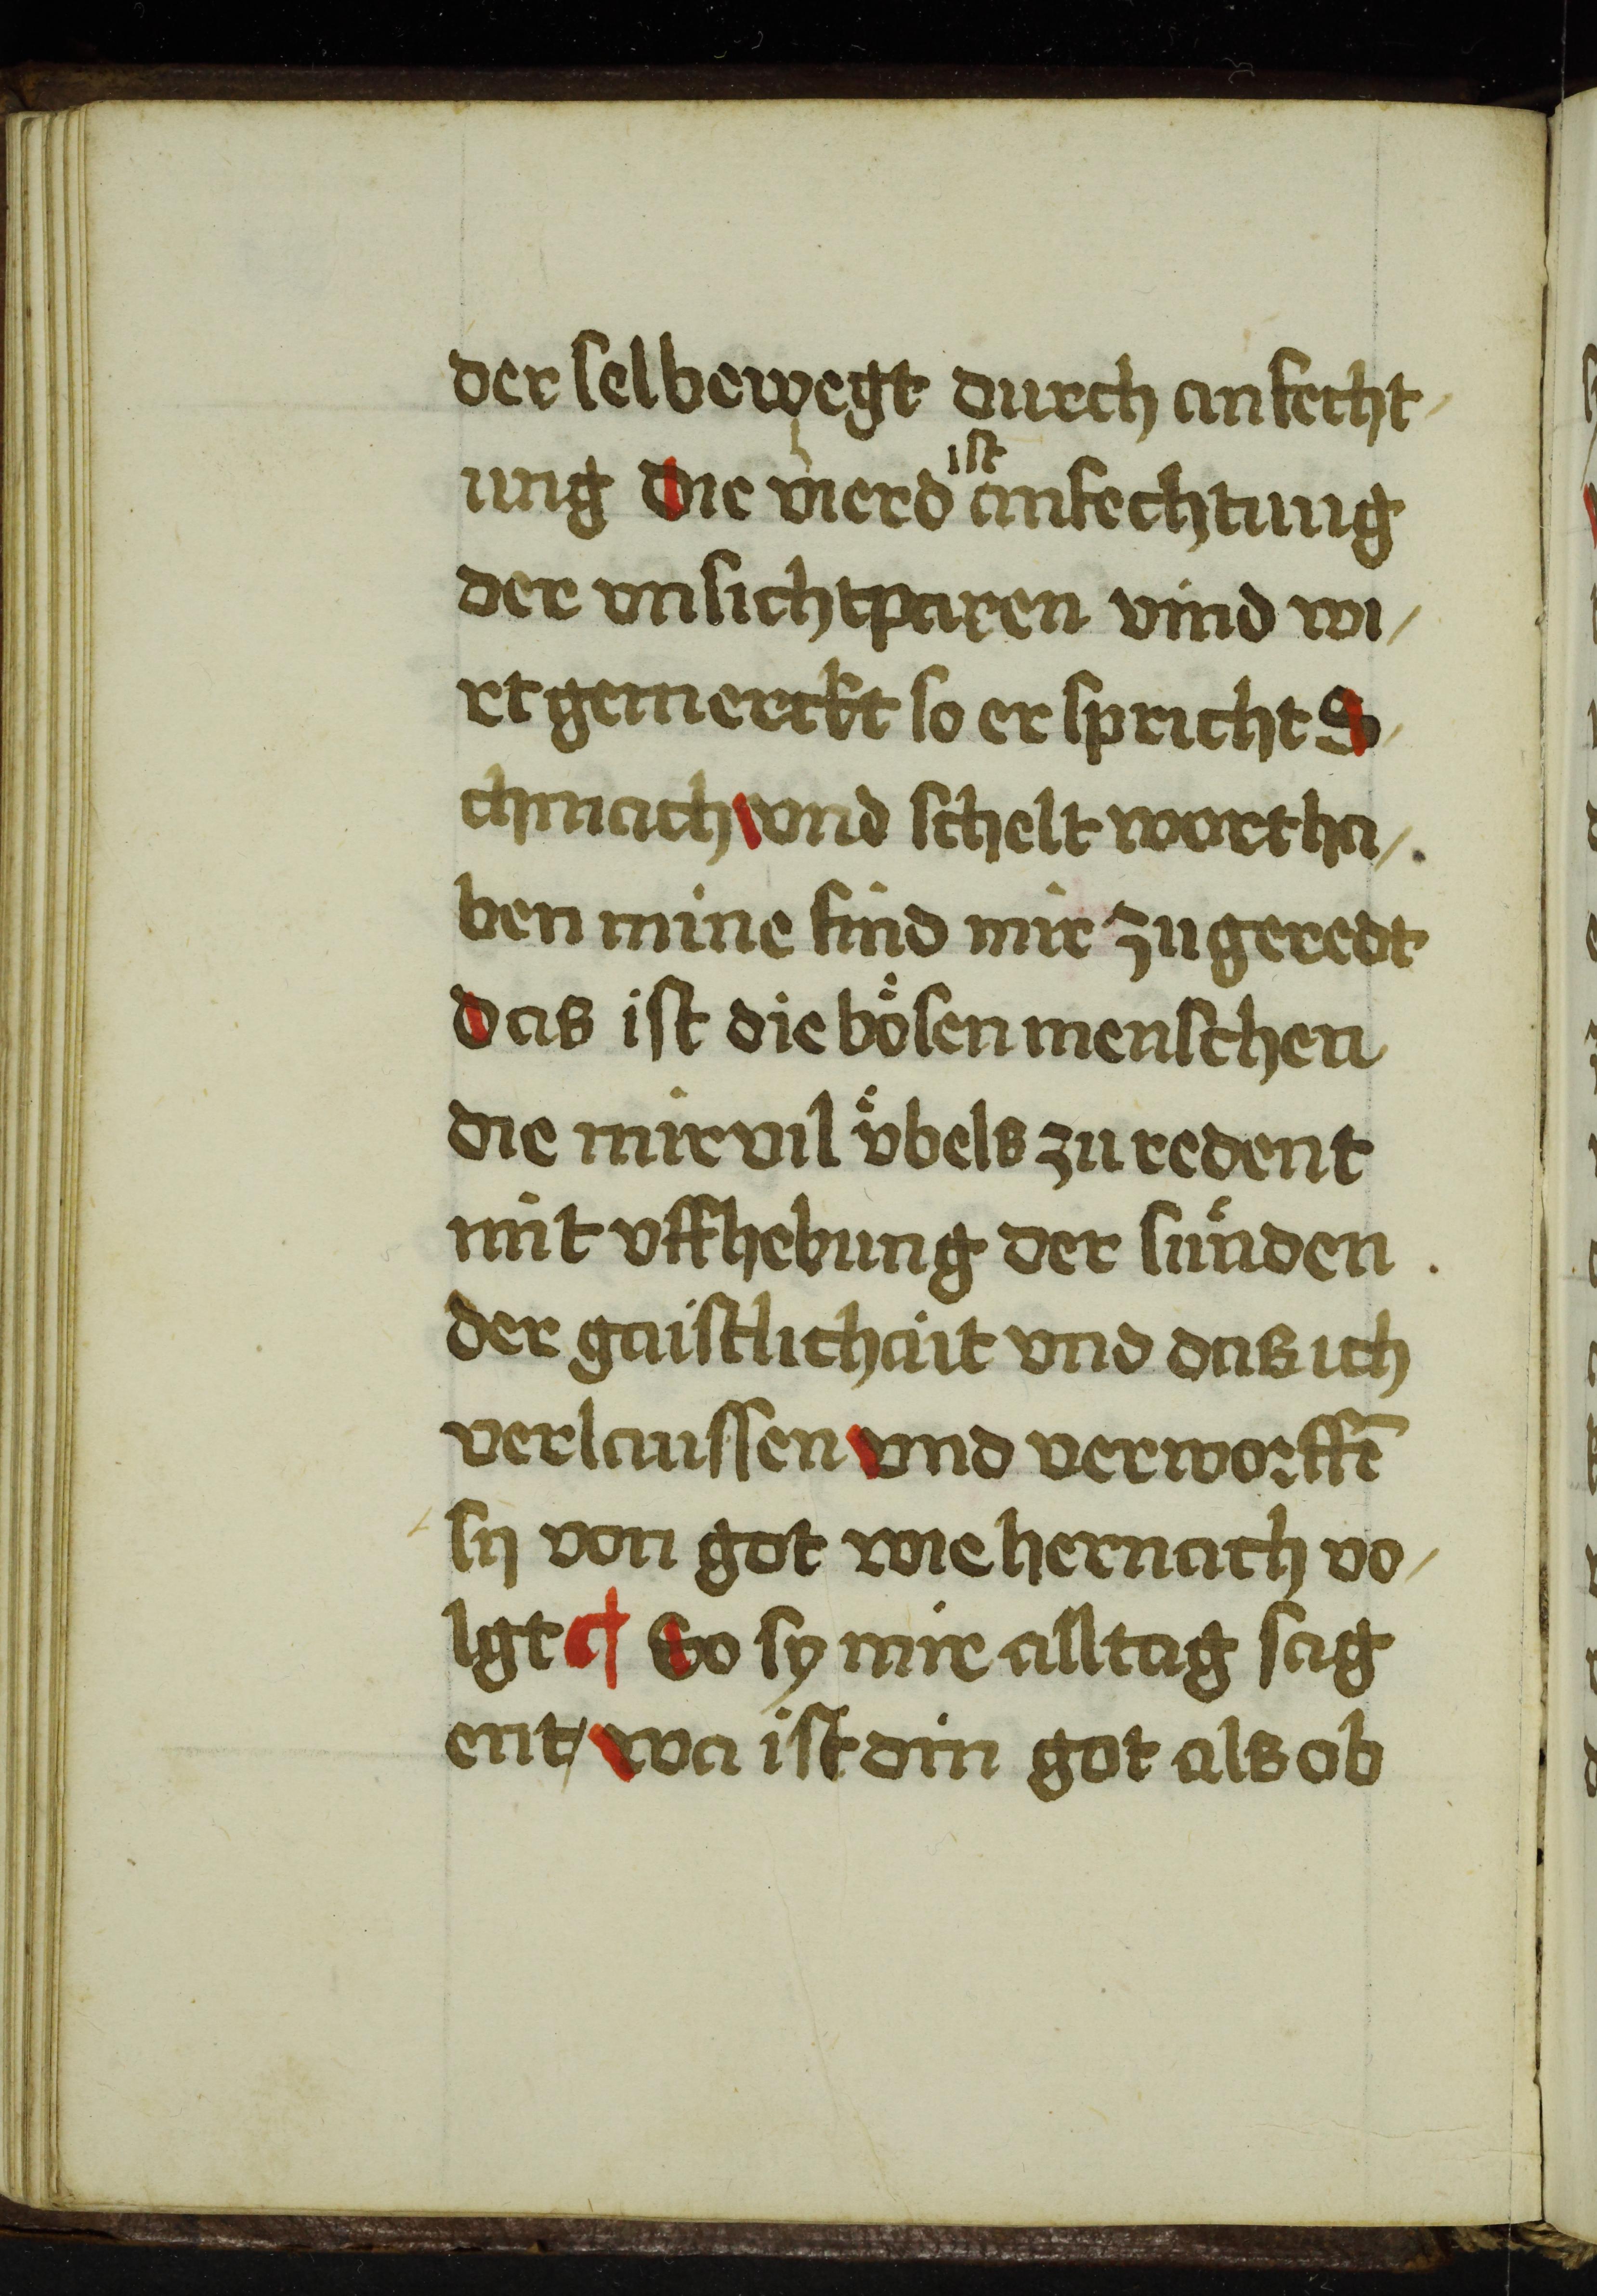 der selbewegt durch anfecht/
ung Die vierd ist anfechtung
der vnsichtparen vind wi/
rt gemerckt so er spricht S/
chmach vnd schelt wort ha/
ben mine find mir zu geredt
Das ist die bo̊sen menschen
die mir vil v̊bels zu redent
mit vffhebung der sůnden
der gaistlichait vnd das ich
verlaussen vnd verworffē
sy von got wie hernach vo/
lgt ¶ So sy mir alltag sag
ent / wa ist din got als ob